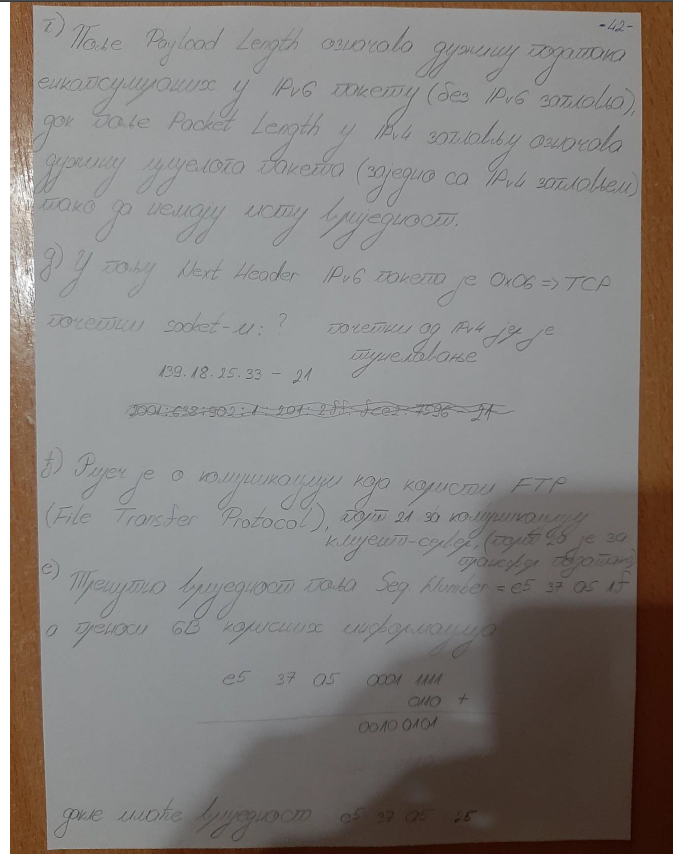 -42-
г) Поље Payload Length означава дужину података
енкапсулираних у IPv6 пакету (без IPv6 заглавља),
док поље Packet Length у IPv4 заглављу означава
дужину цијелога пакета (заједно са IPv4 заглављем)
тако да немају исту вриједност.
д) У пољу Next Header IPv6 пакета је 0x06 => TCP
почетни socket-и: ? почетни од IPv4 јер је
тунеловање
139.18.25.33 - 21
ђ) Ријеч је о комуникацији која користи FTP
(File Transfer Protocol), порт 21 за комуникацију
клијент-сервер, (порт 20 је за
трансфер података)
е) Тренутна вриједност поља Seq Number = e5 37 05 1f
а преноси 6B корисних информација
e5 37 05 0001 1111
0110 +
0010 0101
дакле имаће вриједност e5 37 05 25